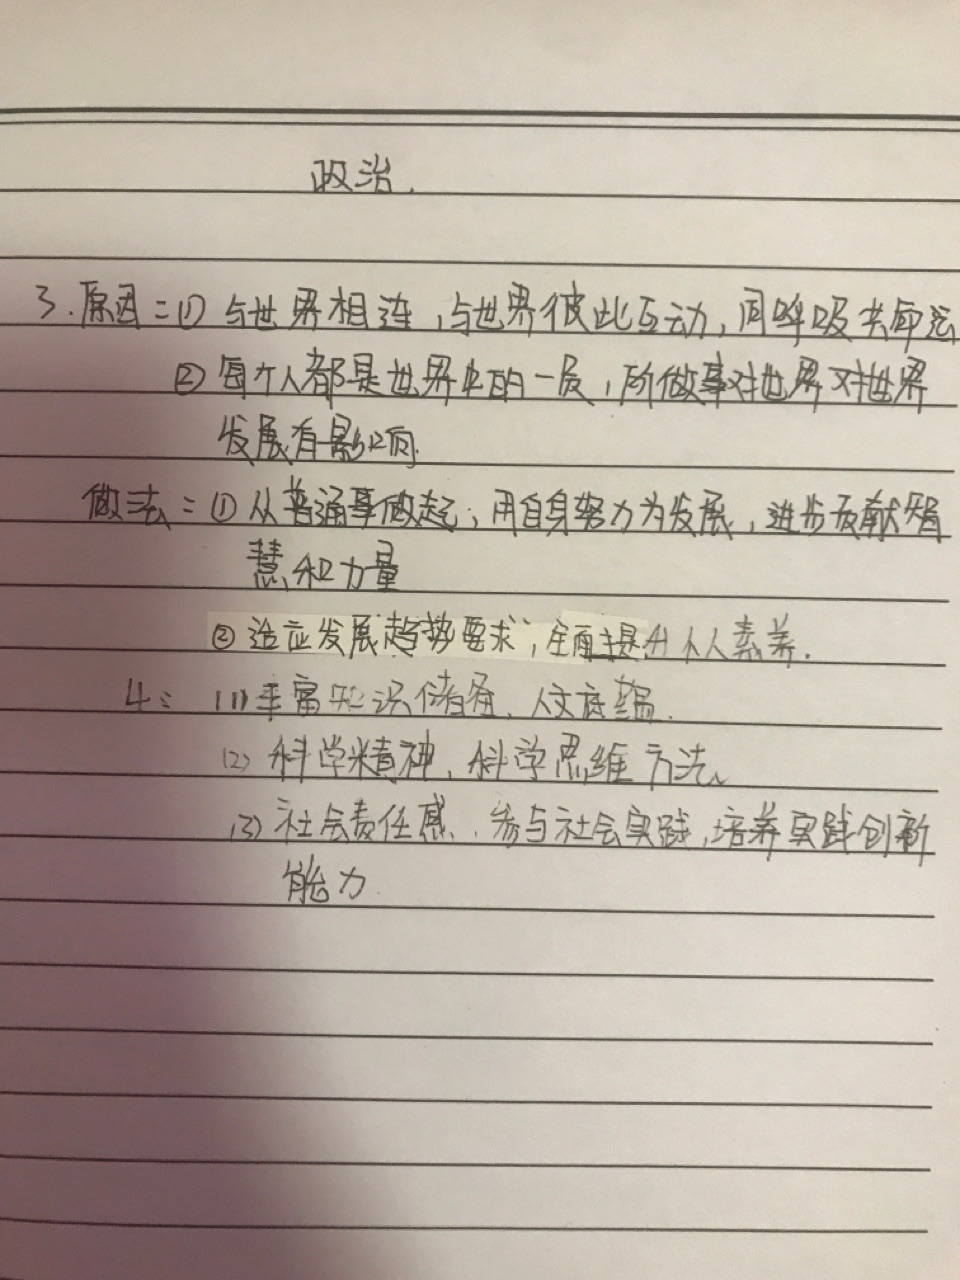 政治.
3.原因:① 与世界相连,与世界彼此互动,同呼吸共命运
② 每个人都是世界中的一员,所做事对世界对世界
发展有影响.
做法:① 从普通事做起,用自身努力为发展,进步贡献智
慧和力量
② 适应发展趋势要求,全面提升个人素养.
4: (1)丰富知识储备、人文底蕴.
(2) 科学精神、科学思维方法、
(3) 社会责任感、参与社会实践,培养实践创新
能力.